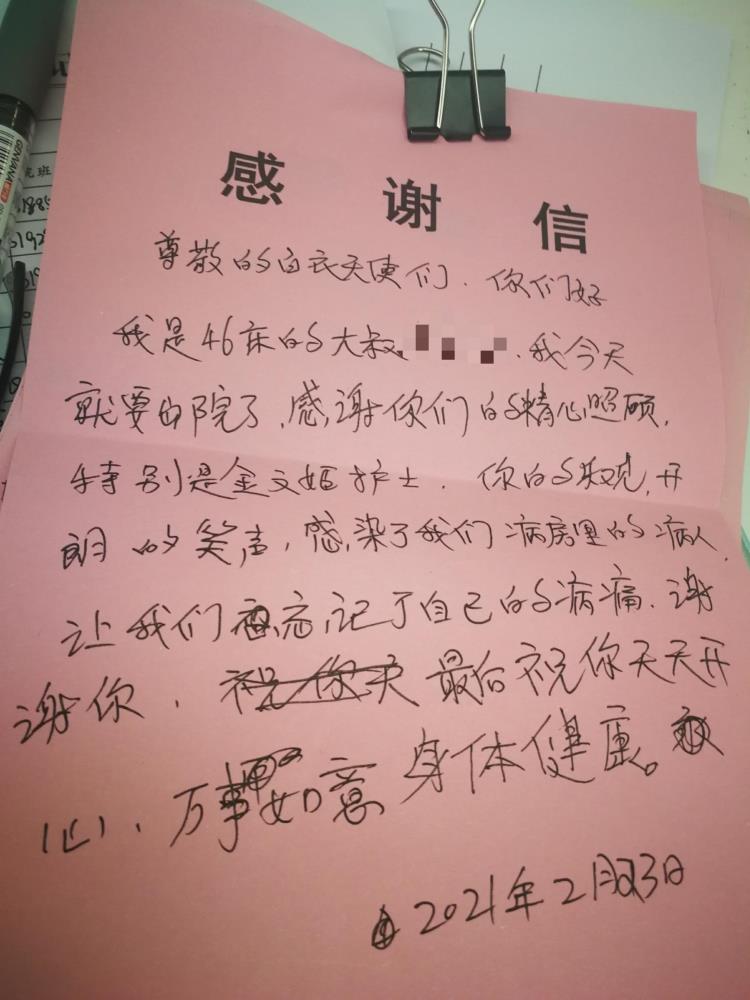 感谢信
尊敬的白衣天使们、你们好
我是46床的大叔、我今天
就要出院了、感谢你们的精心照顾,
特别是金文姬护士、你的乐观,开
朗的笑声,感染了我们病房里的病人,
让我们忘记了自己的病痛、谢
谢你、最后祝你天天开
心、万事如意身体健康。
2021年2月23日
GENVANA